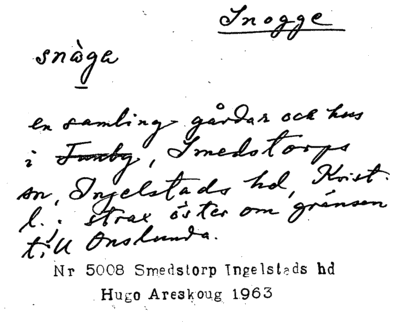 Snogge
snåga
en samling gårdar och hus
i Tunby, Smedstorps
sn, Ingelstads hd, Krist.
l.; strax öster om gränsen
till Onslunda.
Nr 5008 Smedstorp Ingelstads hd
Hugo Areskoug 1963